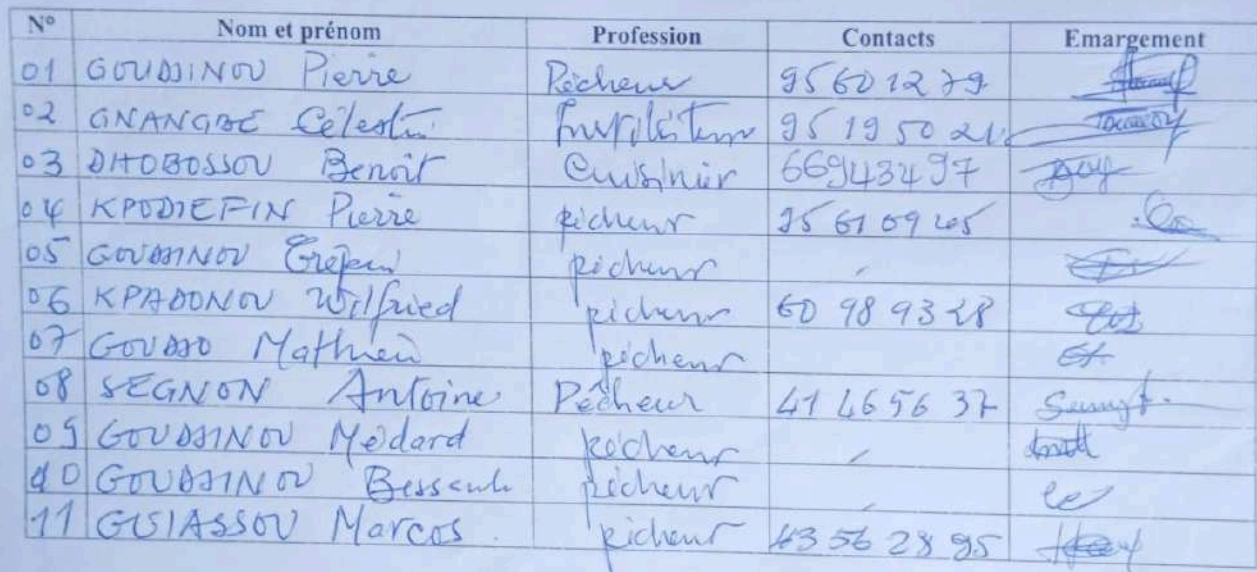 N° Nom et prénom Profession Contacts Emargement
01 GOUDJINOU Pierre Pêcheur 95 60 12 79
02 GNANGBE Célestin 95 19 50 21
03 DHOBOSSOU Benoît Cuisinier 66943497
04 KPODIEFIN Pierre pêcheur 95 61 09 05
05 GOUDJINOU pêcheur
06 KPADONOU Wilfried pêcheur 60 98 93 28
07 GOUDJO Mathieu pêcheur
08 SEGNON Antoine Pêcheur 41 46 56 37
09 GOUDJINOU Médard pêcheur
10 GOUDJINOU pêcheur
11 Marcos pêcheur 43 56 28 95